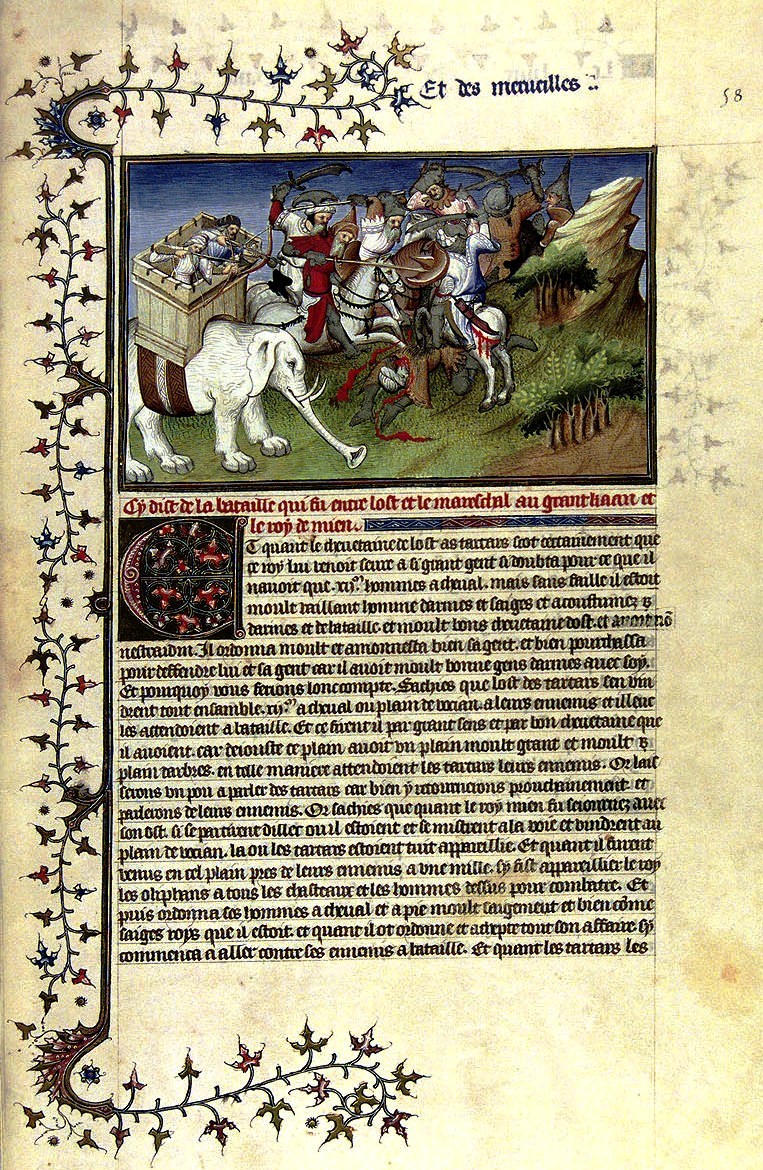 Et des merueilles
58
Cy dist de la bataille qui fu entre lost et le mareschal au grant kaan et
le roy de mien.
Et quant le cheuetaine de lost as tartars scot certainement que
ce roy lui venoit seure a si grant gent si doubta pour ce que il
nauoit que .xij.m hommes a cheual. mais sans faille il estoit
moult vaillant homme darmes et saiges et acoustumez
darmes et de bataille et moult bons cheuetaine dost. et
Il ordonna moult et amonnesta bien sa gent. et bien pourchassa
pour deffendre lui et sa gent car il auoit moult bonne gens darmes auec soy.
Et pourquoy vous feroions lonc compte. Sachies que lost des tartars sen vin
drent tout ensamble .xij.m a cheual ou plain de vocian. a leurs ennemis et illeuc
les attendoient a bataille. Et ce firent il par grant sens et par bon cheuetaine que
il auoient. car deiouste ce plain auoit vn plain moult grant et moult
plain darbres. en telle maniere attendoient les tartars leurs ennemis. Or lais
serons vn pou a parler des tartars car bien y retournerons prouchainement. et
parlerons de leurs ennemis. Or sachies que quant le roy mien fu seiournez auec
son ost. si se partirent dillec ou il estoient et se mistrent a la voie et vindrent au
plain de vocian. la ou les tartars estoient tuit appareillie. Et quant il furent
venus en cel plain pres de leurs ennemis a vne mille. sy fist appareillier le roy
les oliphans a tous les chasteaux et les hommes dessus pour combatre. Et
puis ordonna ses hommes a cheual et a pie moult saigement et bien come
saiges roys que il estoit. et quant il ot ordonne et tout son affaire sy
commenca a aller contre ses ennemis a bataille. Et quant les tartars les